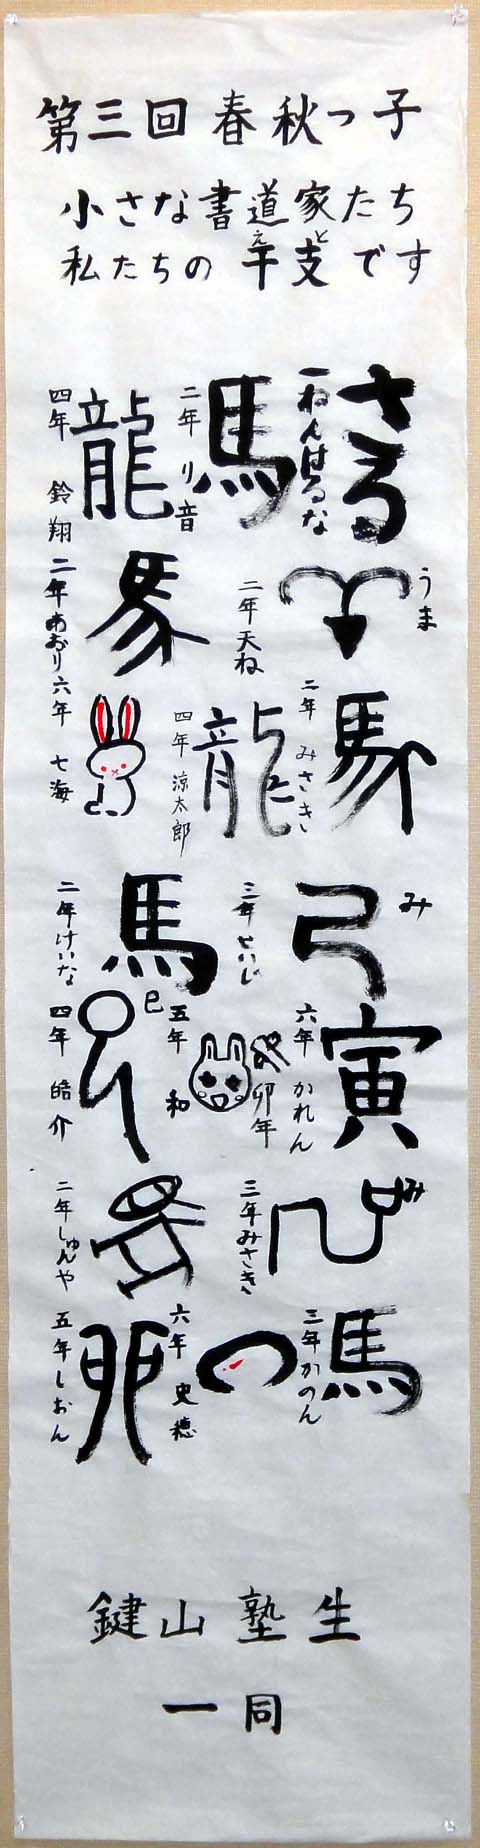 第三回 春秋っ子
小さな書道家たち
私たちの干支です
えと
さる
一ねんはるな
馬
二年 り音
龍
四年 鈴翔
うま
二年天ね
馬
二年あおり
馬
二年 みさき
龍
四年 涼太郎
六年 七海
み
弓
三年せいじ
馬
二年けいな
寅
六年 かれん
卯年
五年 和
巳
四年 皓介
み
三年みさき
二年しゅんや
馬
三年かのん
六年 史穂
卯
五年しおん
鍵山塾生
一同